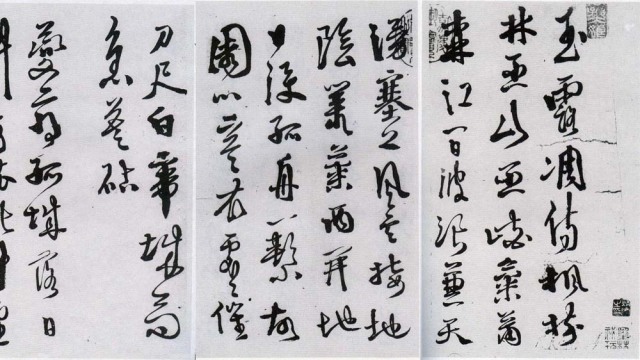 玉露凋傷楓樹
林巫山巫峽氣蕭
森江間波浪兼天
湧塞上風雲接地
陰叢菊兩開他
日淚孤舟一繫故
園心寒衣處處催
刀尺白帝城高
急暮砧
夔府孤城落日